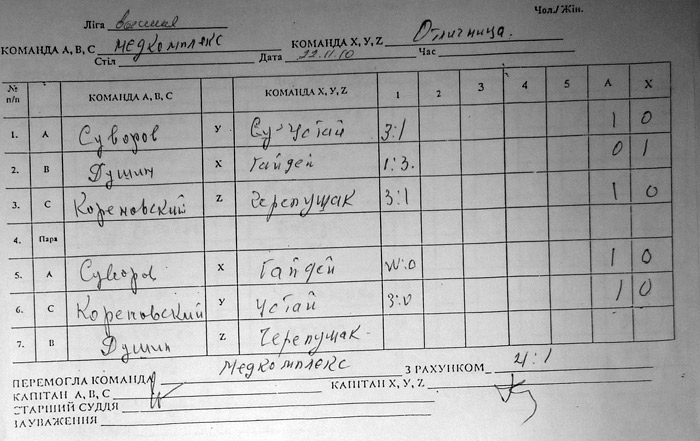 Чол./Жін.
Ліга высшая
КОМАНДА А, В, С медкомплекс КОМАНДА X, У, Z Отличница.
Стіл Дата 22.11.10 Час
№ п/п КОМАНДА А, В, С КОМАНДА X, У, Z 1 2 3 4 5 А X
1. А Суворов У Су-Устай 3:1 1 0
2. В Душин X Гайдей 1:3. 0 1
3. С Кореновский Z Черепущак 3:1 1 0
4. Пара
5. А Суворов X Гайдей W:0 1 0
6. С Кореновский У Устай 3:0 1 0
7. В Душин Z Черепущак
ПЕРЕМОГЛА КОМАНДА Медкомплекс З РАХУНКОМ 4:1
КАПІТАН А, В, С КАПІТАН X, У, Z
СТАРШИЙ СУДДЯ
ЗАУВАЖЕННЯ